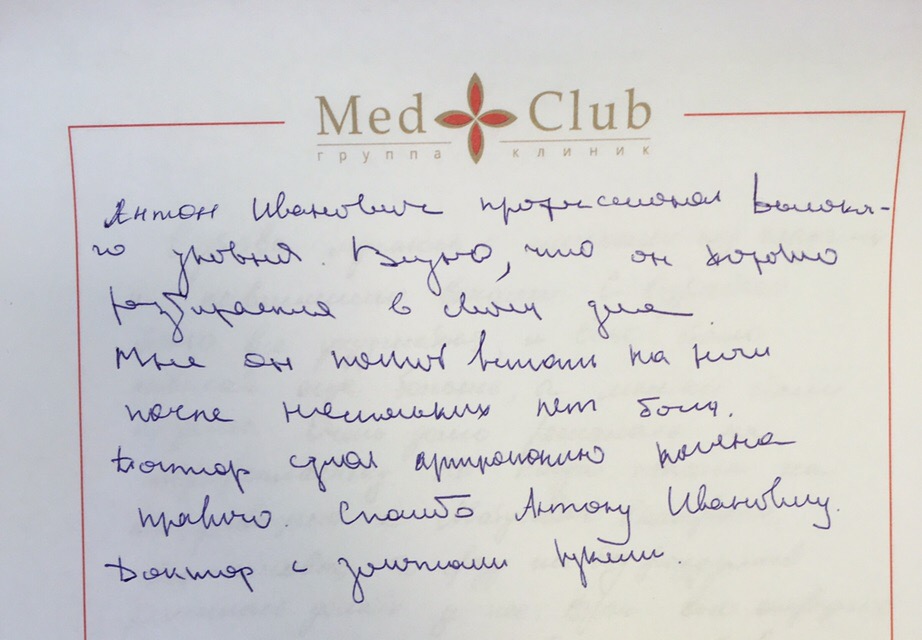 Med Club
группа клиник
Антон Иванович профессионал высоко-
го уровня. Видно, что он хорошо
разбирается в своем деле
Мне он помог встать на ноги
после нескольких лет боли.
Доктор сделал артроскопию колена
правого. Спасибо Антону Ивановичу.
Доктор с золотыми руками.